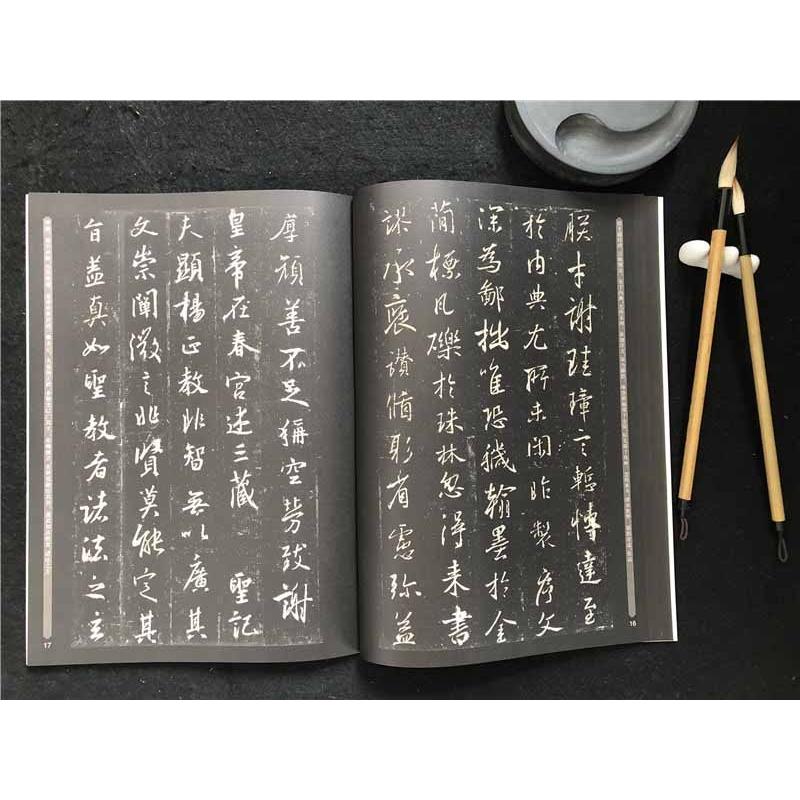 朕才謝珪璋言慙博達至
於內典尤所未閑昨製序文
深為鄙拙唯恐穢翰墨於金
簡標瓦礫於珠林忽得來書
謬承褒讚循躬省慮彌益
16
厚顏善不足稱空勞致謝
皇帝在春宮述三藏 聖記
夫顯揚正教非智無以廣其
文崇闡微言非賢莫能定其
旨蓋真如聖教者諸法之玄
17